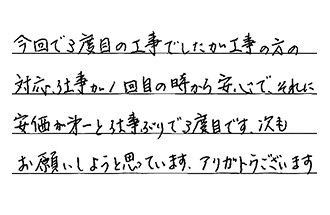 今回で3度目の工事でしたが工事の方の
対応、仕事が1回目の時から安心で、それに
安価が第一と仕事ぶりで3度目です、次も
お願いしようと思っています、アリガトウございます